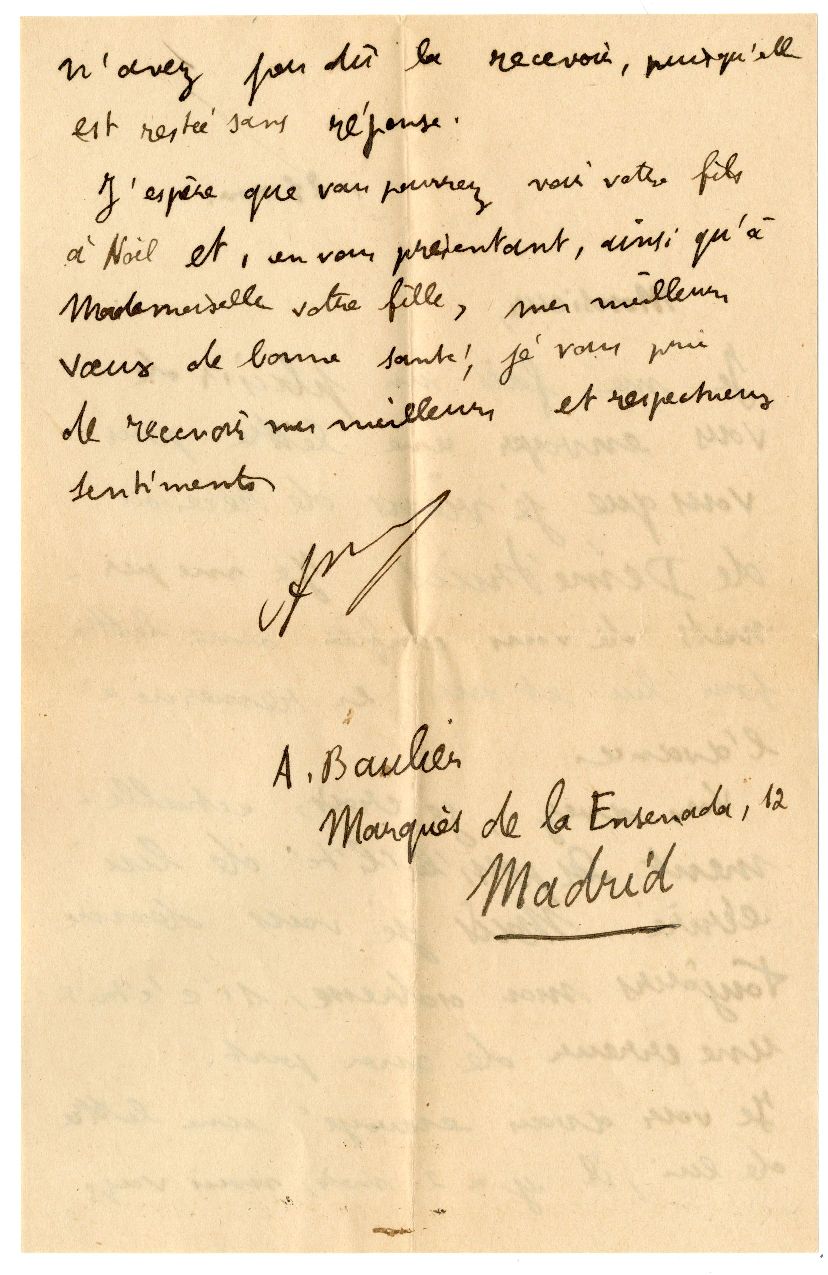 n'avez pas dû la recevoir, puisqu'elle
est restée sans réponse.
J'espère que vous pourrez voir votre fils
à Noël et, en vous présentant, ainsi qu'à
Mademoiselle votre fille, mes meilleurs
vœux de bonne santé, je vous prie
de recevoir mes meilleurs et respectueux
sentiments
A. Baulier
Marquès de la Ensenada, 12
Madrid